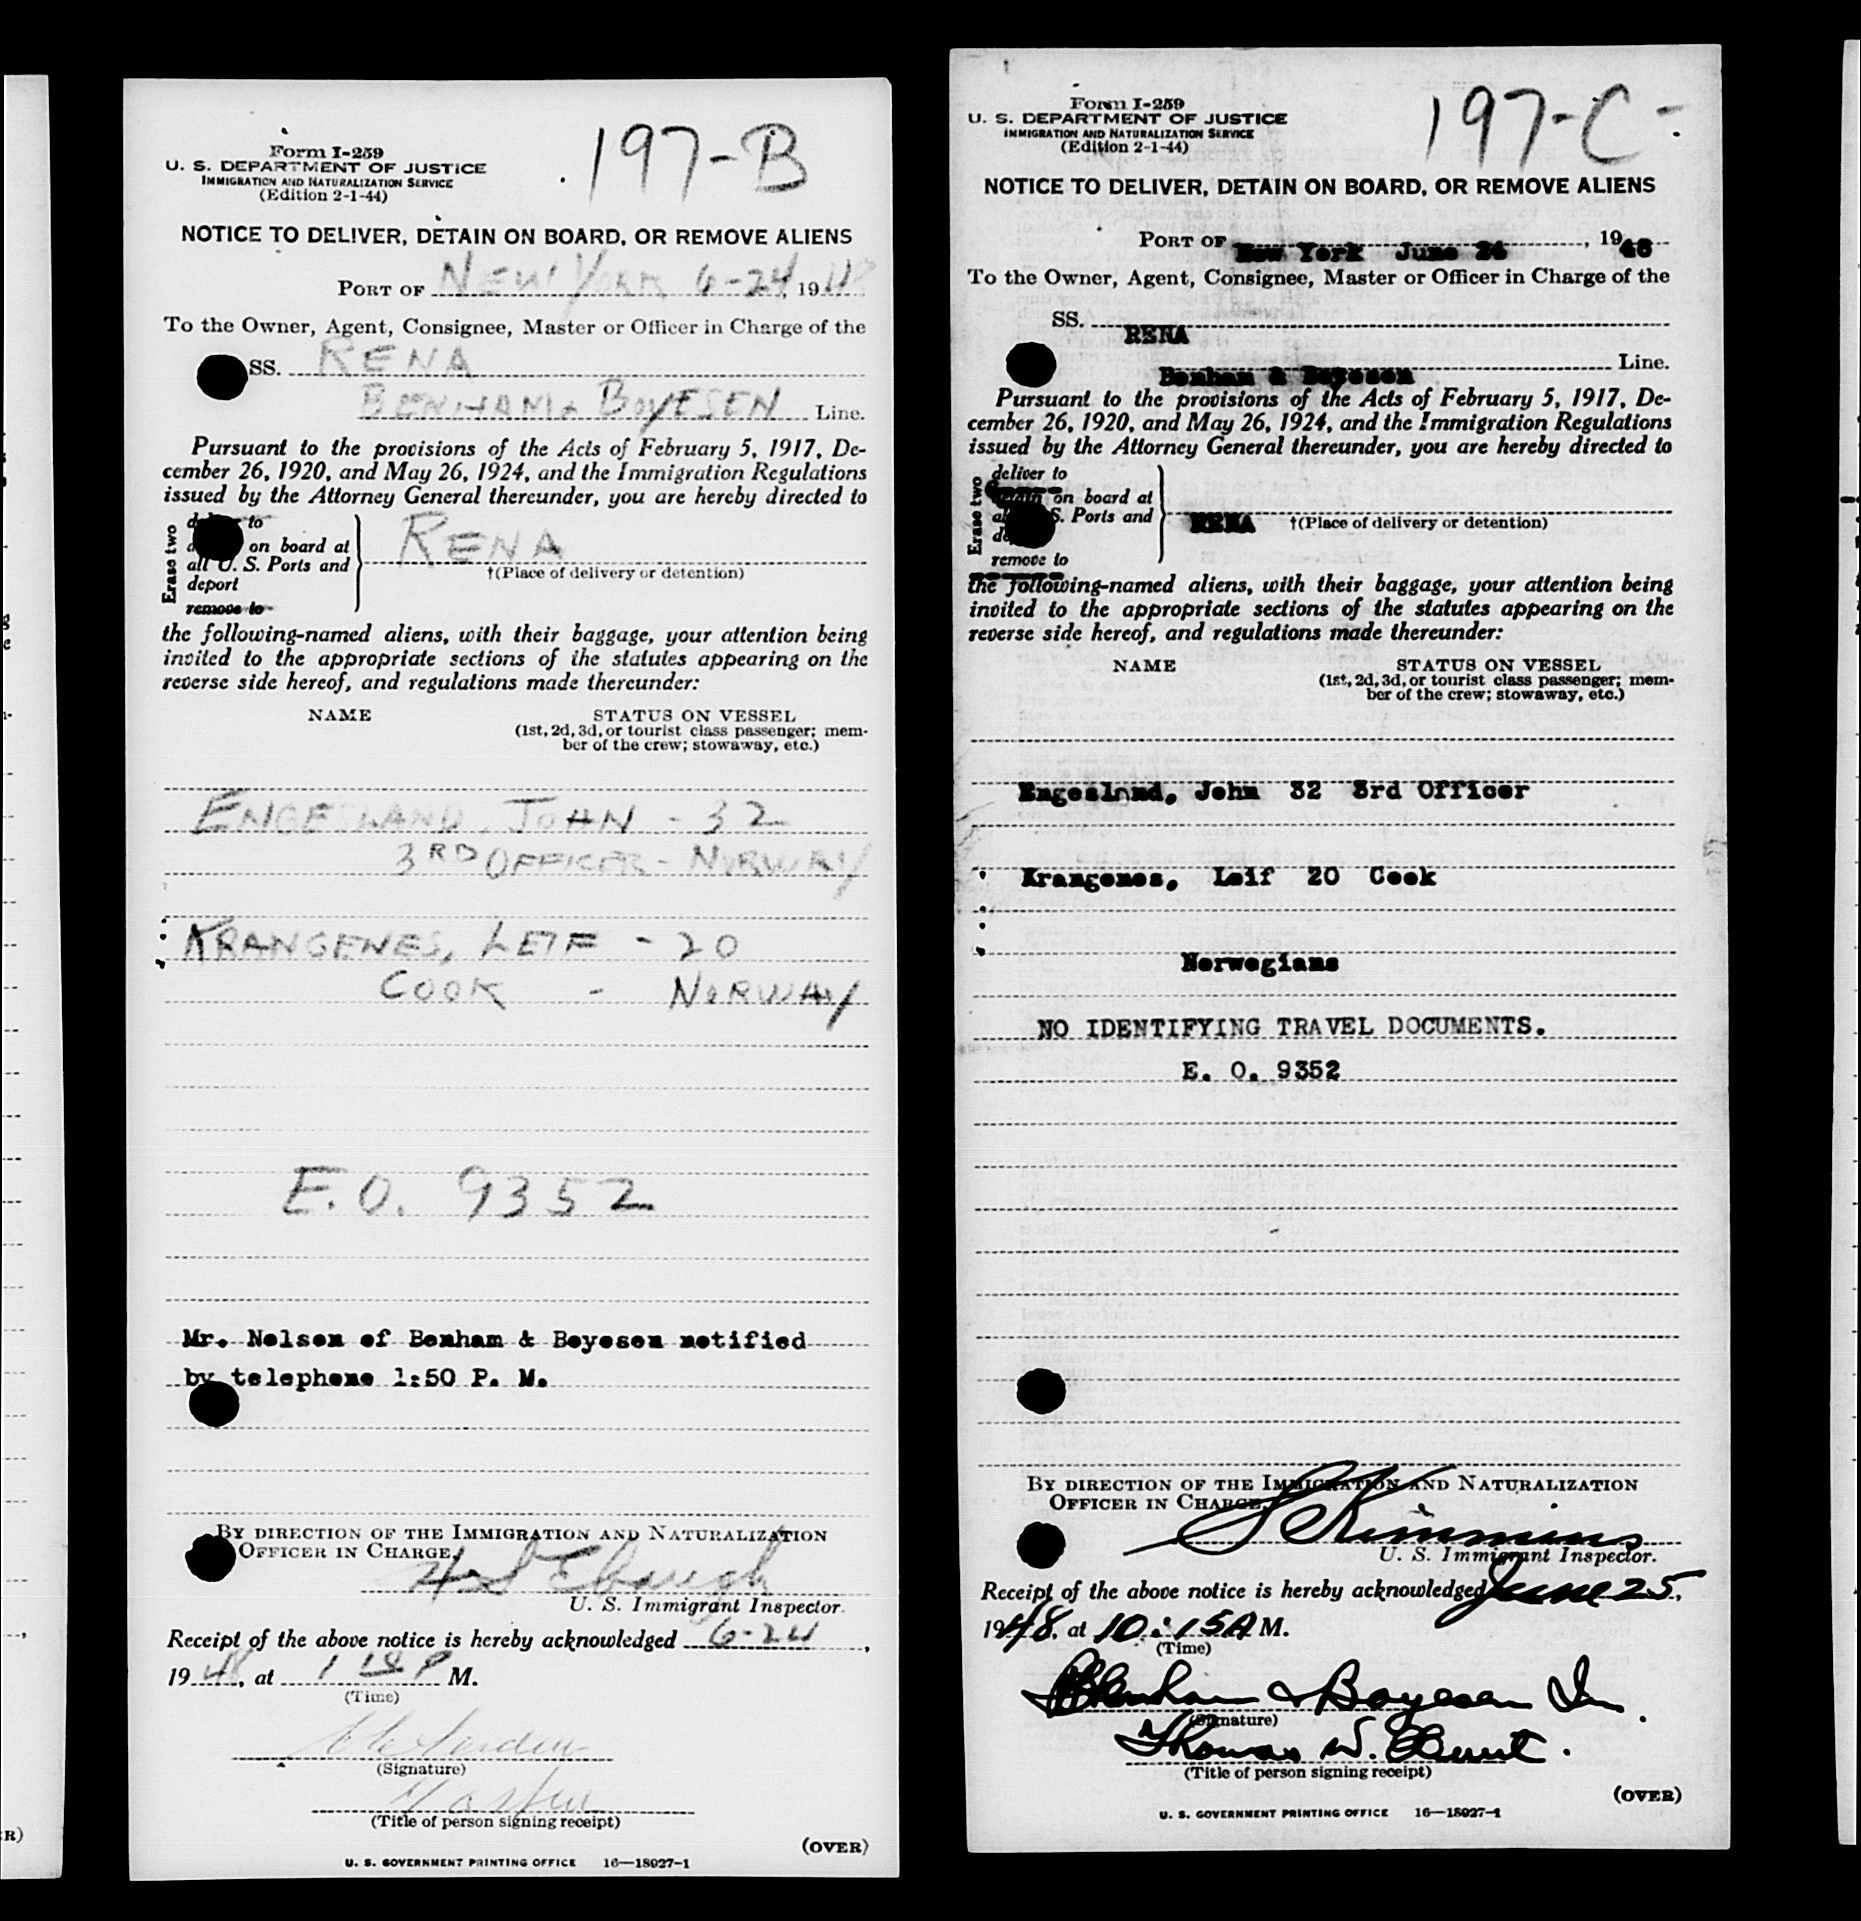 Form I-259
U. S. DEPARTMENT OF JUSTICE
IMMIGRATION AND NATURALIZATION SERVICE
(Edition 2-1-44)
197-B
NOTICE TO DELIVER, DETAIN ON BOARD, OR REMOVE ALIENS
PORT OF NEW YORK 6-24, 1948
To the Owner, Agent, Consignee, Master or Officer in Charge of the
SS. RENA
BENHAM & BOYESEN Line.
Pursuant to the provisions of the Acts of February 5, 1917, De-
cember 26, 1920, and May 26, 1924, and the Immigration Regulations
issued by the Attorney General thereunder, you are hereby directed to
Erase two
to
on board at
all U. S. Ports and
deport
remove to
RENA
†(Place of delivery or detention)
the following-named aliens, with their baggage, your attention being
invited to the appropriate sections of the statutes appearing on the
reverse side hereof, and regulations made thereunder:
NAME STATUS ON VESSEL
(1st, 2d, 3d, or tourist class passenger; mem-
ber of the crew; stowaway, etc.)
ENGESLAND, JOHN - 32
3RD OFFICER - NORWAY
KRANGENES, LEIF - 20
COOK - NORWAY
E.O. 9352
Mr. Nelsen of Benham & Boyesen notified
by telephone 1:50 P. M.
BY DIRECTION OF THE IMMIGRATION AND NATURALIZATION
OFFICER IN CHARGE.
U. S. Immigrant Inspector.
Receipt of the above notice is hereby acknowledged 6-24,
1948, at 1 P M.
(Time)
(Signature)
Master
(Title of person signing receipt)
(OVER)
U. S. GOVERNMENT PRINTING OFFICE 16—18027-1
Form I-259
U. S. DEPARTMENT OF JUSTICE
IMMIGRATION AND NATURALIZATION SERVICE
(Edition 2-1-44)
197-C-
NOTICE TO DELIVER, DETAIN ON BOARD, OR REMOVE ALIENS
PORT OF New York June 24, 1948
To the Owner, Agent, Consignee, Master or Officer in Charge of the
SS. RENA
Benham & Boyesen Line.
Pursuant to the provisions of the Acts of February 5, 1917, De-
cember 26, 1920, and May 26, 1924, and the Immigration Regulations
issued by the Attorney General thereunder, you are hereby directed to
Erase two
deliver to
on board at
S. Ports and
remove to
RENA †(Place of delivery or detention)
the following-named aliens, with their baggage, your attention being
invited to the appropriate sections of the statutes appearing on the
reverse side hereof, and regulations made thereunder:
NAME STATUS ON VESSEL
(1st, 2d, 3d, or tourist class passenger; mem-
ber of the crew; stowaway, etc.)
Engesland, John 32 3rd Officer
Krangenes, Leif 20 Cook
Norwegians
NO IDENTIFYING TRAVEL DOCUMENTS.
E. O. 9352
BY DIRECTION OF THE IMMIGRATION AND NATURALIZATION
OFFICER IN CHARGE.
Kimmins
U. S. Immigrant Inspector.
Receipt of the above notice is hereby acknowledged June 25,
1948, at 10:15A M.
(Time)
Benham & Boyesen In
(Signature)
Thomas W.
(Title of person signing receipt)
(OVER)
U. S. GOVERNMENT PRINTING OFFICE 16—18027-1